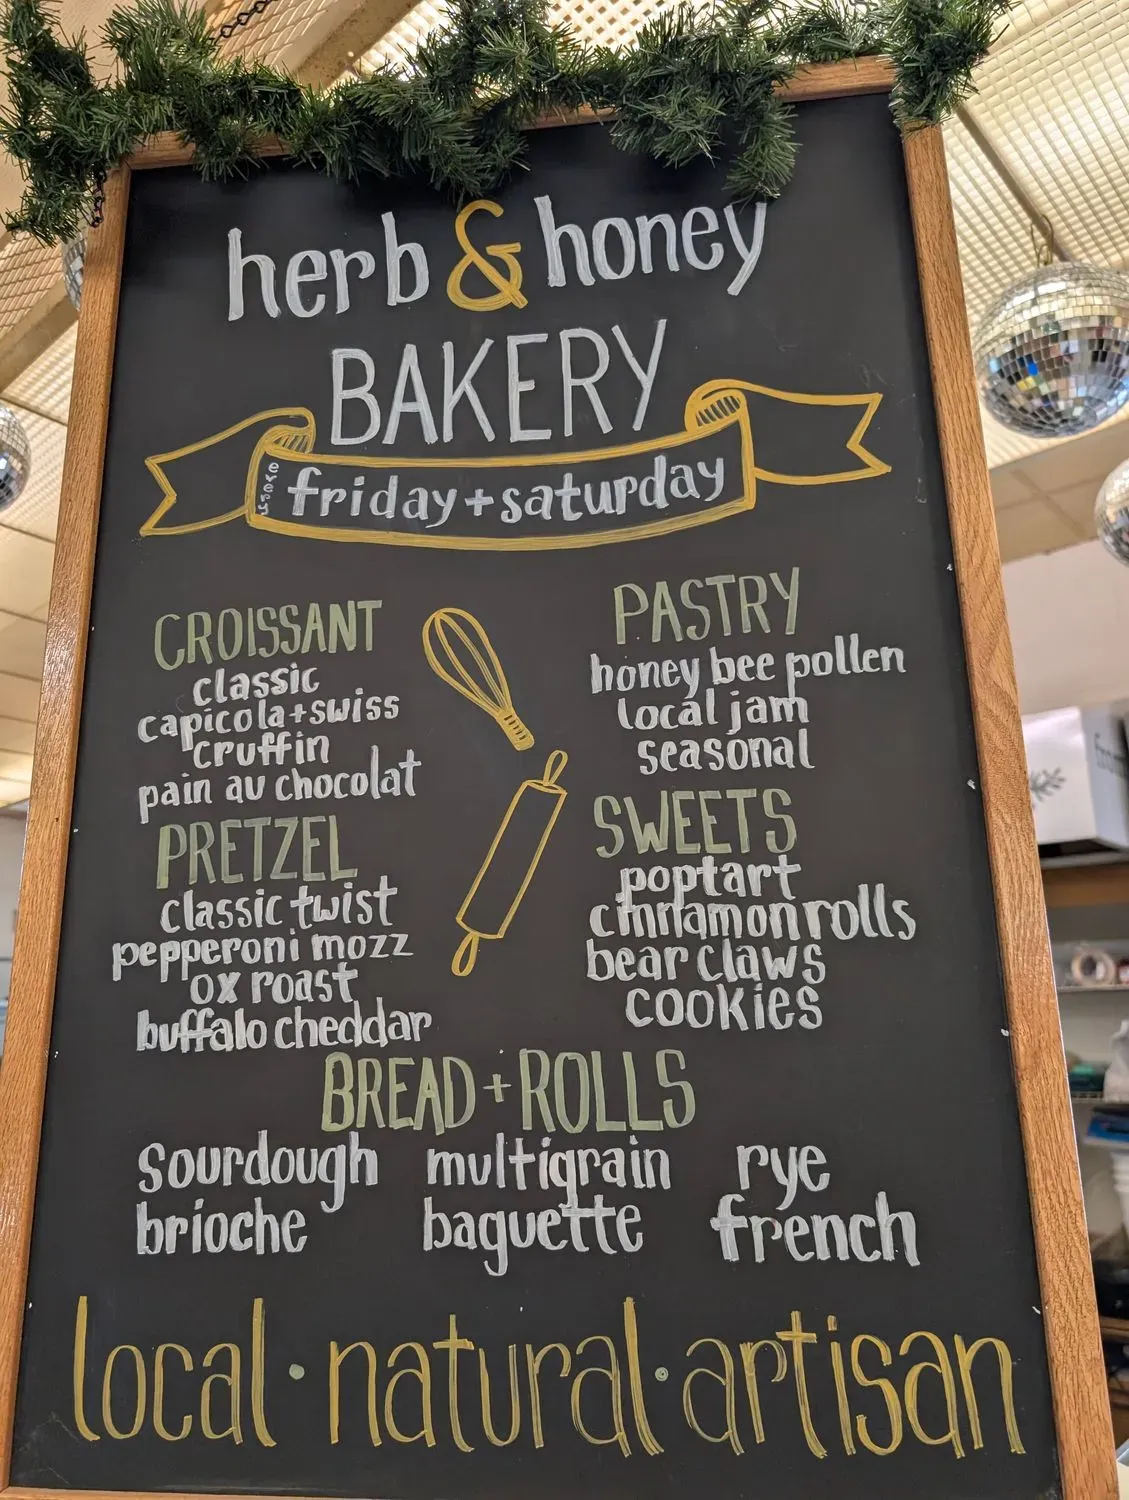 herb & honey
BAKERY
every
friday + saturday
CROISSANT
classic
capicola + swiss
cruffin
pain au chocolat
PRETZEL
classic twist
pepperoni mozz
ox roast
buffalo cheddar
PASTRY
honey bee pollen
local jam
seasonal
SWEETS
poptart
cinnamon rolls
bear claws
cookies
BREAD + ROLLS
sourdough multigrain rye
brioche baguette french
local · natural · artisan